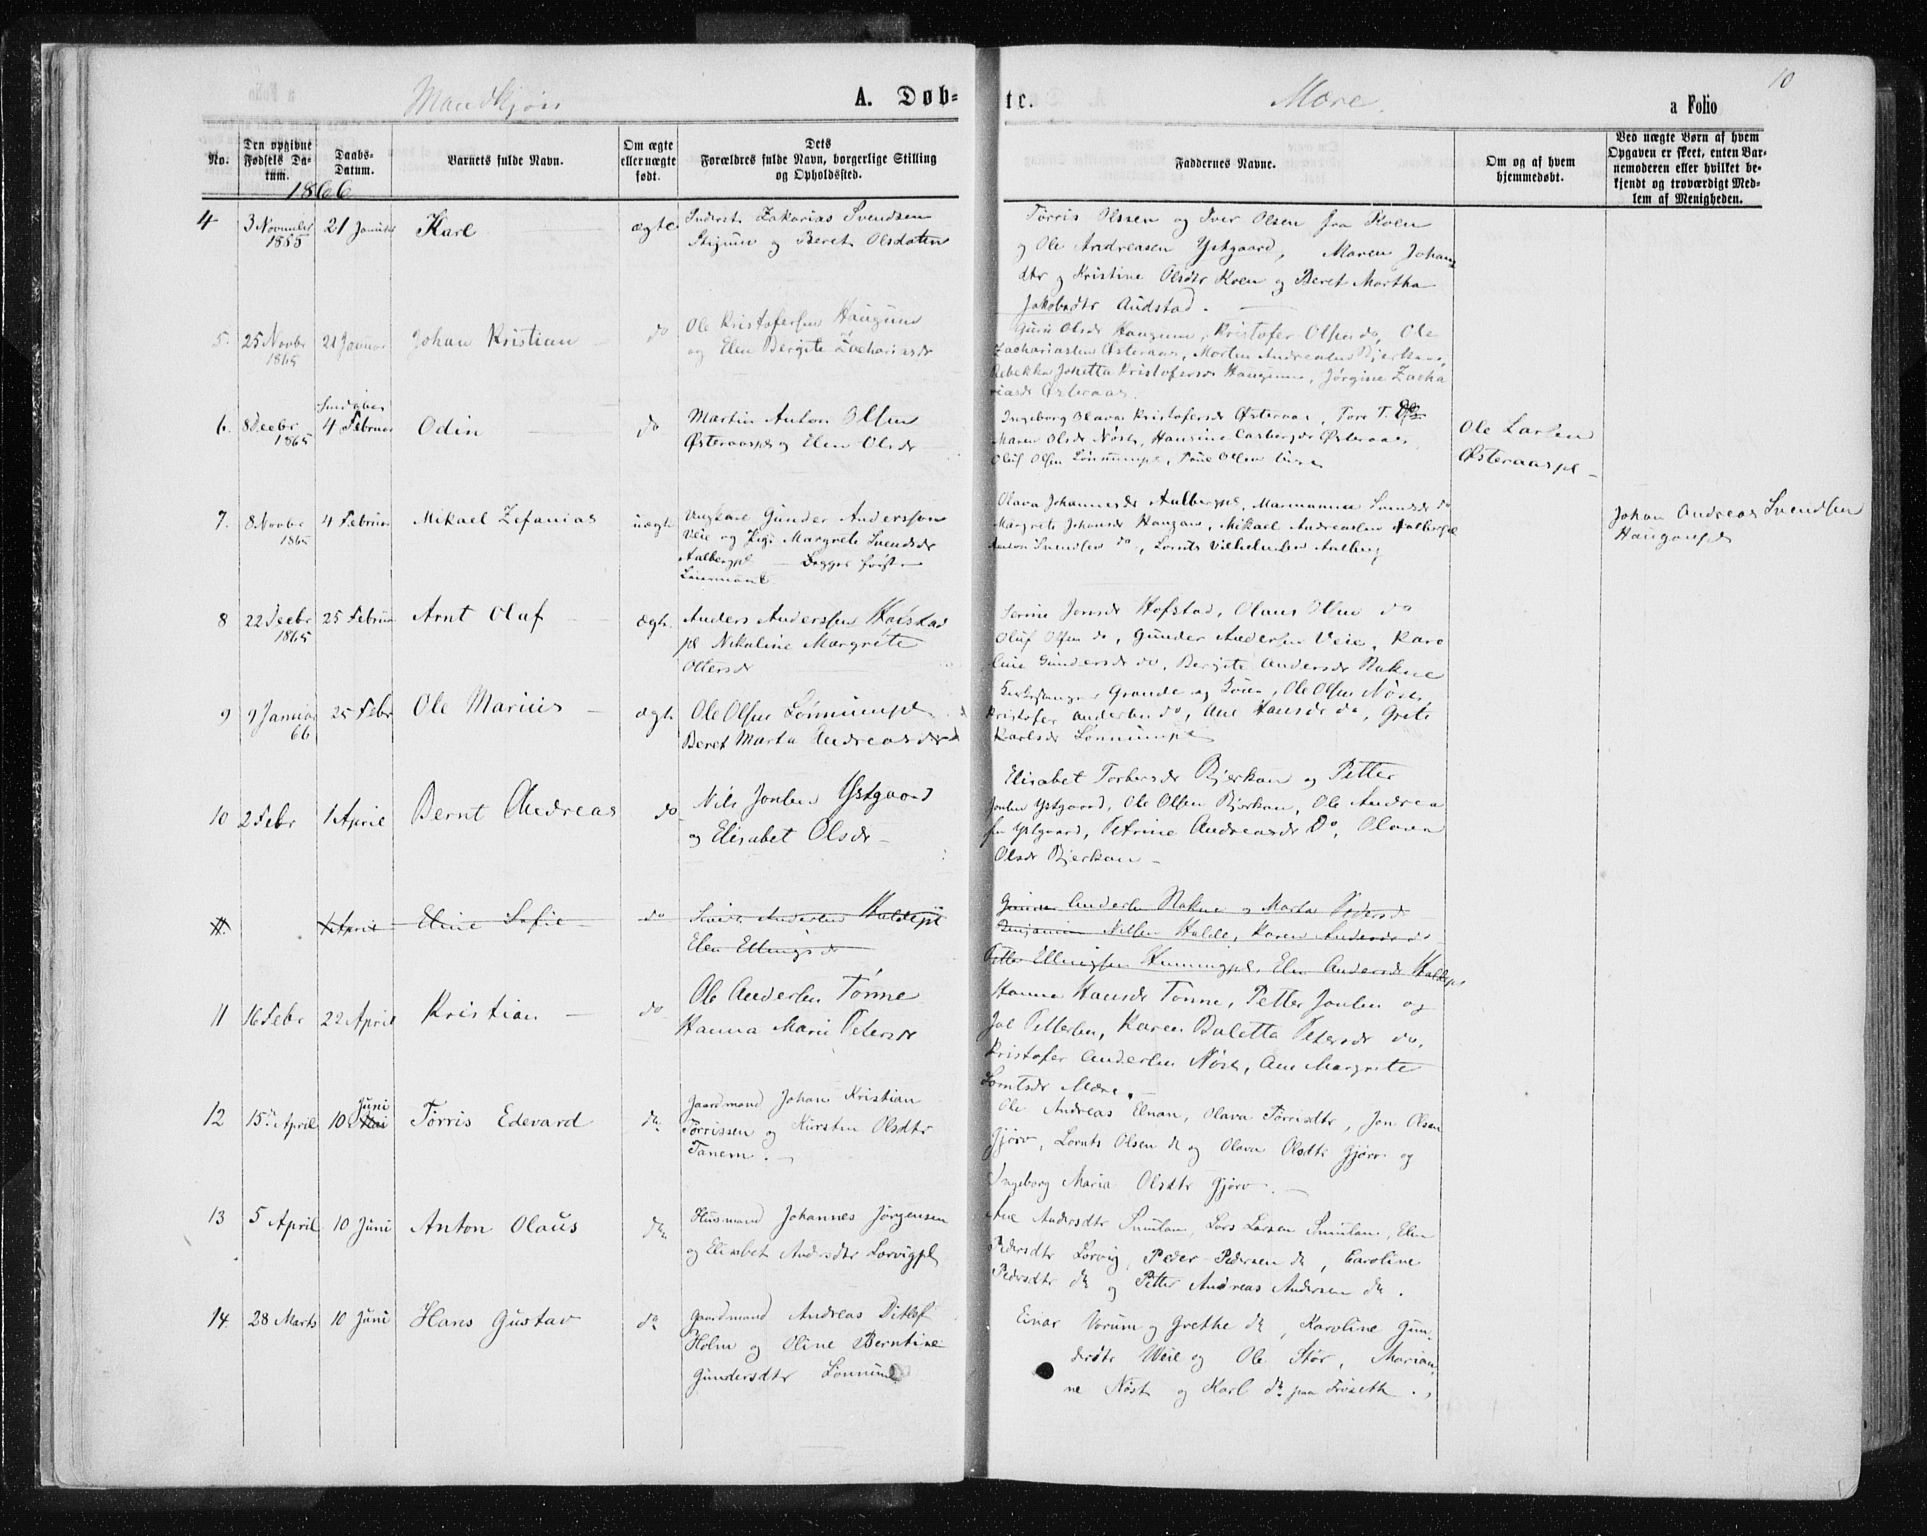 Mandkjøn
A. Døb-
te.
Mære.
10
a Folio
No.
Den opgivne Fødsels Da-
tum.
Daabs-
Datum.
Barnets fulde Navn.
Om ægte
eller uægte
født.
Dets
Forældres fulde Navn, borgerlige Stilling
og Opholdssted.
Faddernes Navne.
Om og af hvem
hjemmedøbt.
Ved uægte Børn af hvem
Opgaven er skeet, enten Bar-
nemoderen eller hvilket be-
kjendt og troværdigt Med-
lem af Menigheden.
1866
4 3 November 21 Januar Karl ægte Zakarias Svendsen
1855 og Beret Olsdatter
Tørris Olssen og Iver Olsen fra Koen
og Ole Andreasen Ystgaard, Maren Johans
dtr og Kristine Olsdtr Koen og Beret Martha
Jakobsdtr Audstad.
5. 25 Novbr 21 Januar Johan Kristian do Ole Kristofersen Haugum
1865 og Elen Bergite Zachariasdr
Guru Olsdr Haugum, Kristofer Olsen do, Ole
Zachariassen Østeraas, Morten Andreassen Bjerkan,
Rebekka Kristofersdr Haugum, Jørgine Zacha
riasdr Østeraas.
6. 8 Decbr 4 Februar Odin do Martin Anton Olsen
1865 Østeraaspl og Elen Olsdr
Ingeborg Olava Kristofersdr Østeraas, Tore T.
Maren Olsdr Nøst, Hansine Østeraas,
Oluf Olsen Lønnumpl, Paul Olsen
Ole Larsen
Østeraaspl
7. 8 Novbr 4 Februar Mikael Zefanias uægte Ungkarl Gunder Anderssen
1865 Veie og Pige Margrete Svendsdr
Aalbergpl Begges første
Leiermaal
Olava Johannesdr Aalbergpl, Svendsdr do
Margrete Johansdr Haugan, Mikael Andreassen Aalbergpl
Anton Svendsen do, Lornts Vilhelmsen Aalberg
Johan Andreas Svendsen
Hauganpl
8 22 Decbr 25 Februar Arnt Olaf ægte Anders Anderssen
1865 pl Nikoline Margrete
Oliersdr
Serine Jonsdr Hofstad, Olaus Olsen do
Oluf Olsen do, Gunder Andersen Veie, Karo
line Gundersdr do, Bergite Andersdr Rakne
9 9 Januar 25 Febr Ole Marius ægte Ole Olsen Lønnumpl
66 Beret Marta Andreasdr
Grande og , Ole Olsen Nøst,
Kristofer Andersen do, Ane Hansdr do, Grete
Karlsdr Lønnumpl
10 2 Febr 1 April Bernt Andreas do Nils Jonsen Ystgaard
og Elisabet Olsdr
Elisabet Torbersdr Bjerkan og Petter
Jonsen Ystgaard, Ole Olsen Bjerkan, Ole Andrea
sen Ystgaard, Petrine Andreasdr Do, Olava
Olsdr Bjerkan
11. 1 April Eline Sofie do Andersen Haldepl
Elen Ellingsdr
Gunder Andersen Rakne og Marta Pedersdr
Benjamin Nilsen Halde, Karen Andersdr do
Petter Ellingsen Hummgpl, Elen Andersdr Haldepl
11 16 Febr 22 April Kristian do Ole Andersen Tønne
Hanna Marie Petersdr
Hanna Hansdr Tønne, Petter Jonsen og
Petersen, Karen Buletta Petersdr do,
Kristofer Andersen Nøst, Ane Margrete
Lorntsdr Mære.
12 15de April 10 Juni Tørris Edevard do Gaardmand Johan Kristian
Tørrissen og Kirsten Olsdtr
Tanem.
Ole Andreas Elnan, Olava Tørrisdtr, Jon Olsen
Gjørv, Lornts Olsen do og Olava Olsdtr Gjørv og
Ingeborg Maria Olsdtr Gjørv.
13 5 April 10 Juni Anton Olaus do Husmand Johannes Jørgensen
og Elisabet Andersdtr Lorvigpl
Ane Andersdtr Smulan, Lars Larsen Smulan, Elen
Pedersdtr Lorvig, Peder Pedersen do, Caroline
Pedersdtr do og Petter Andreas Andersen do.
14. 28 Marts 10 Juni Hans Gustav do Gaardmand Andreas Ditlef
Holm og Oline Berntine
Gundersdtr Lønnum
Einar Vorum og Grethe do, Karoline Gun-
dersdtr Weie og Ole Stør, Marian-
ne Nøst og Karl do paa Friseth.